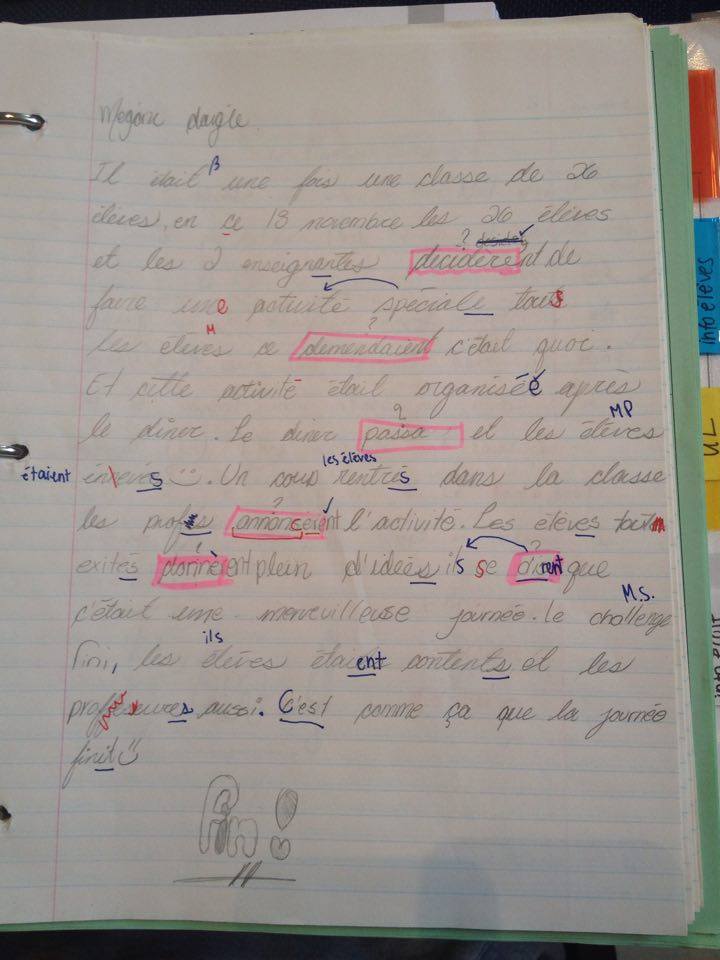 Mégane daigle
β
Il était une fois une classe de 26
élèves, en ce 13 novembre les 26 élèves
?
et les 2 enseignantes décidèrent de
faire une activité spéciale tous
M ?
les élèves ce demendaient c'était quoi.
Et cette activité était organisée après
? MP
le diner. Le diner passa et les élèves
étaient les élèves
énervés. Un coup rentrés dans la classe
?
les profs annoncèrent l'activité. Les élèves tout
?
exités donnèrent plein d'idées ils se dirent que
M.S.
c'était une merveilleuse journée. le challenge
ils
fini, les élèves étaient contents et les
professeures aussi. C'est comme ça que la journée
finit
Fin!
info élèves
UL